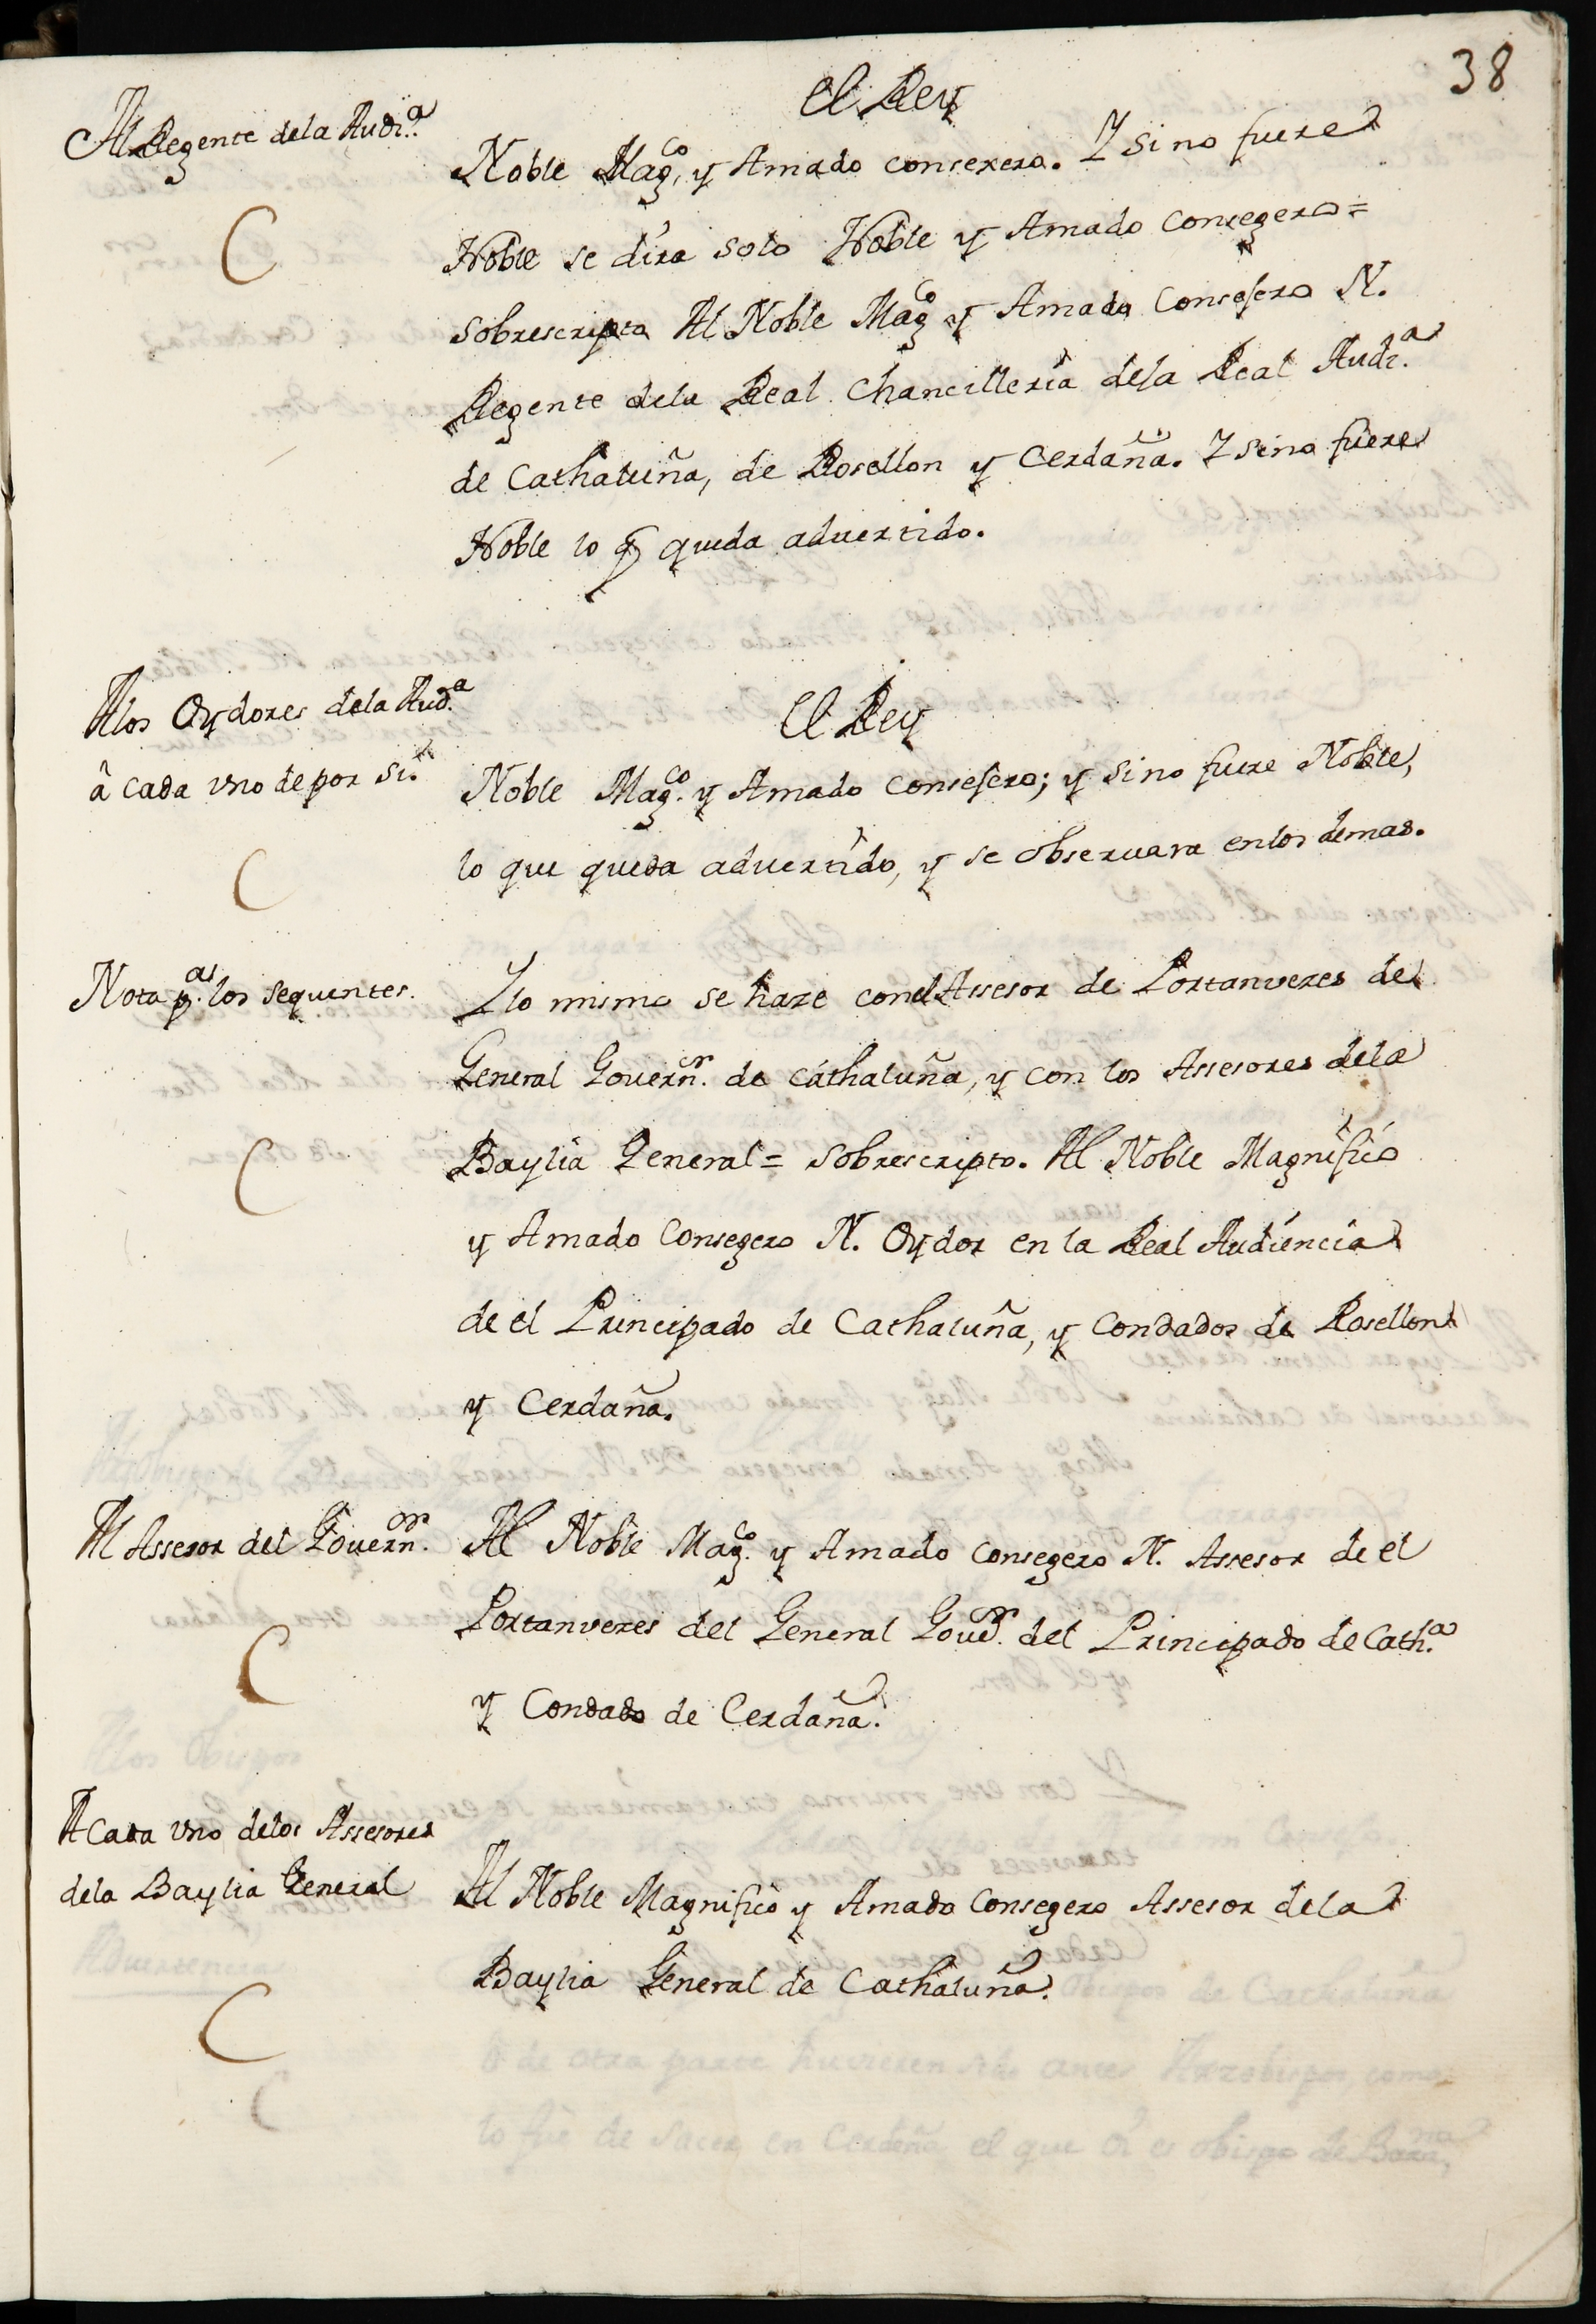 38
Al Regente dela Audi.ª
C
El Rey
Noble Mag.co y Amado consexero. Y si no fuere
Noble se dira solo Noble y Amado Consegero =
Sobrescripto Al Noble Mag.co y Amado Consejero N.
Regente dela Real Chancilleria dela Real Audi.ª
de Cathaluña, de Rosellon y Cerdaña. Y sino fuere
Noble lo q̃ queda aduertido.
Alos Oydores dela Aud.ª
â Cada vno de por si.
C
El Rey
Noble Mag.co y Amado Consejero; y si no fuere Noble,
lo que queda aduertido, y se obseruara enlos demas.
Nota p.ª los sequentes.
C
Y lo mismo se haze conel Assesor de Portanvezes del
General Gouern.or de Cathaluña, y con los Assesores dela
Baylia General = Sobrescripto. Al Noble Magnifico
y Amado Consegero N. Oydor en la Real Audiencia
de el Principado de Cathaluña, y Condados de Rosellon
y Cerdaña.
Al Assesor del Gouern.or
C
Al Noble Mag.co y Amado Consegero N. Assesor de el
Portanvezes del General Goud.or del Principado de Cath.ª
y Condado de Cerdaña.
A Cada vno delos Assesores
dela Baylia General
C
Al Noble Magnifico y Amado Consegero Assesor dela
Baylia General de Cathaluña.